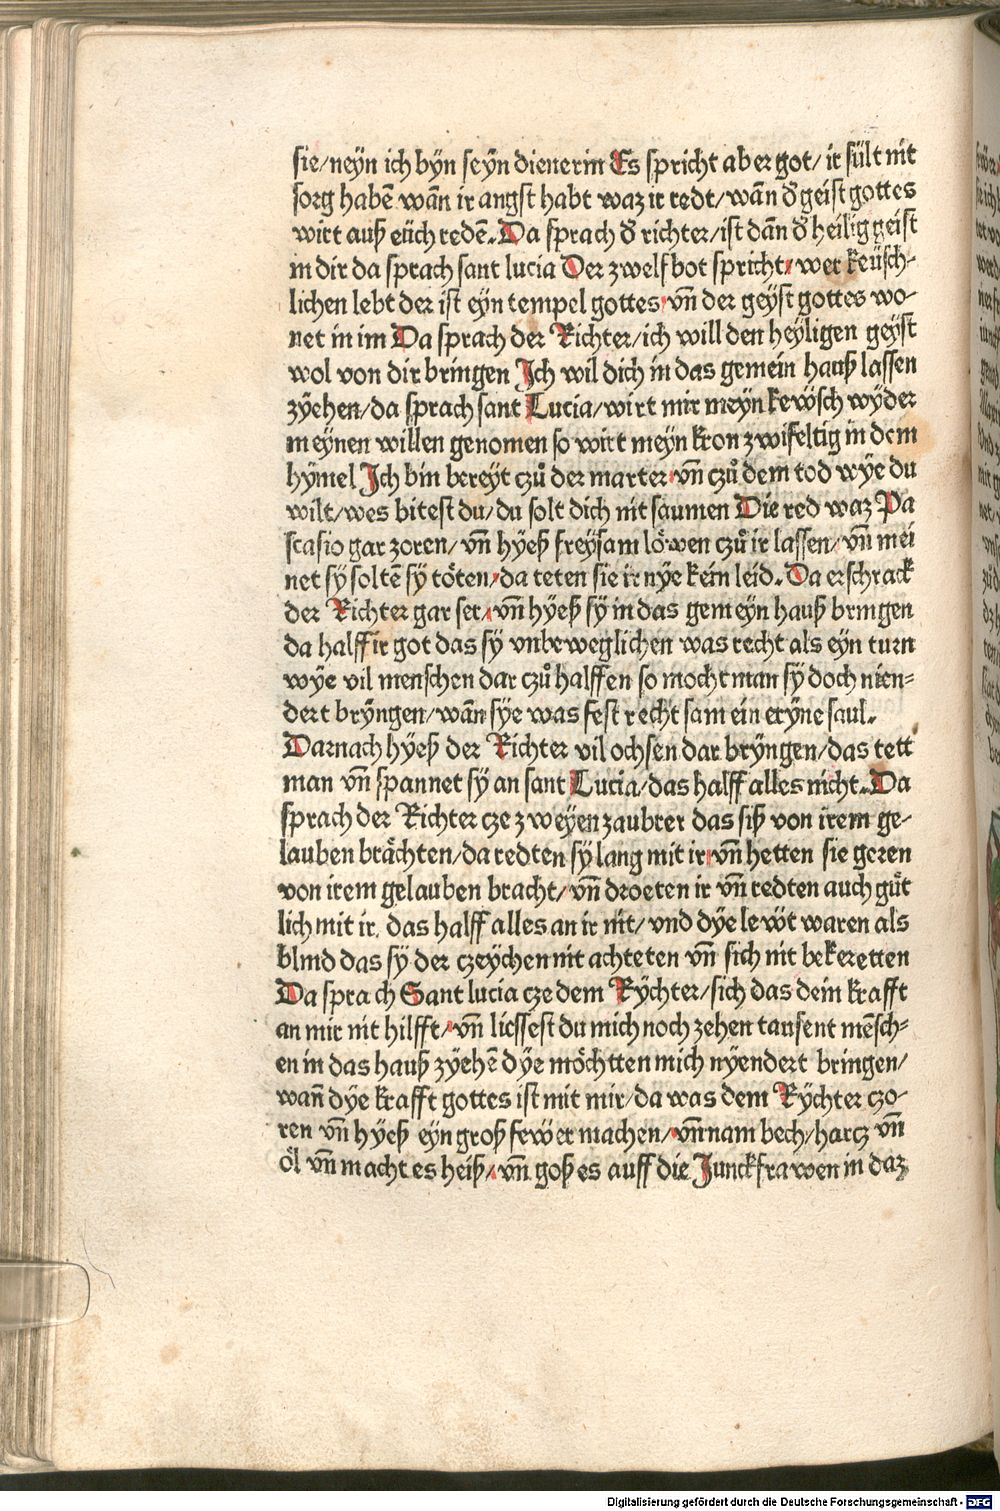 sie/neÿn ich bÿn seÿn dienerin Es spricht aber got/ir sült nit
sorg habẽ wañ ir angst habt waz ir redt/wañ ď geist gottes
wirt auß eüch redẽ. Da sprach ď richter/ist dañ ď heilig geist
in dir da sprach sant lucia Der zwelfbot spricht/wer keüsch-
lichen lebt der ist eÿn tempel gottes vñ der geÿst gottes wo-
net in im Da sprach der Richter/ich will den heÿligen geÿst
wol von dir bringen Ich wil dich in das gemein hauß lassen
zÿehen/da sprach sant Lucia/wirt mir meÿn kewsch wÿder
meÿnen willen genomen so wirt meÿn kron zwifeltig in dem
hÿmel Ich bin bereÿt czuͦ der marter vñ czuͦ dem tod wÿe du
wilt/wes bitest du/du solt dich nit saumen Die red waz Pa
scasio gar zoren/vñ hÿeß freÿsam löwen czuͦ ir lassen/vñ mei
net sÿ soltẽ sÿ töten/da teten sie ir nÿe kein leid. Da erschrack
der Richter gar ser/vñ hÿeß sÿ in das gemeÿn hauß bringen
da halff ir got das sÿ vnbeweglichen was recht als eÿn turn
wÿe vil menschen dar czuͦ halffen so mocht man sÿ doch nien-
dert brÿngen/wañ sÿe was fest recht sam ein erÿne saul.
Darnach hÿeß der Richter vil ochsen dar brÿngen/das tett
man vñ spannet sÿ an sant Lucia/das halff alles nicht. Da
sprach der Richter cze zweÿen zaubrer das siß von irem ge-
lauben brächten/da redten sÿ lang mit ir vñ hetten sie geren
von irem gelauben bracht/vñ droeten ir vñ redten auch güt
lich mit ir. das halff alles an ir nit/vnd dÿe lewt waren als
blind das sÿ der czeÿchen nit achteten vñ sich nit bekeretten
Da sprach Sant lucia cze dem Rÿchter/sich das dein krafft
an mir nit hilfft/vñ liessest du mich noch zehen tausent mẽsch-
en in das hauß zÿehẽ dÿe möchtten mich nÿendert bringen/
wañ dÿe krafft gottes ist mit mir/da was dem Rÿchter czo-
ren vñ hÿeß eÿn groß fewer machen/vñ nam bech/harcz vñ
öl vñ macht es heiß/vñ goß es auff die Junckfrawen in daz
Digitalisierung gefördert durch die Deutsche Forschungsgemeinschaft - DFG